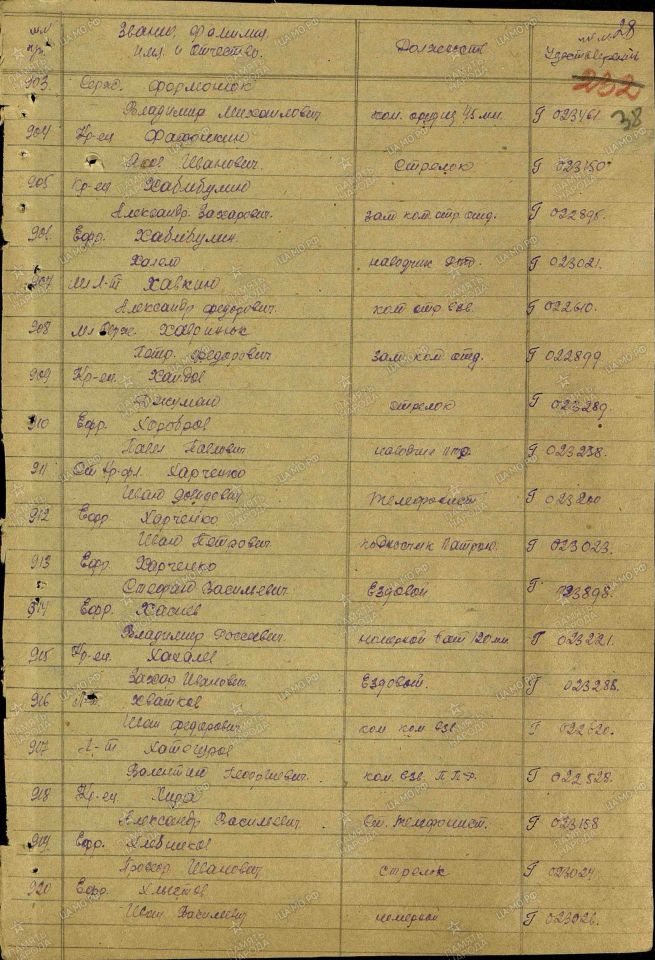 №№ пр. Звание, фамилия имя и отчество. Должность №№ Удостоверения 28
232
38
903 Серж. Формонюк
Владимир Михайлович ком. орудия 45 мм. Г 023461
904 Кр-ец
Иванович. Стрелок Г 023150
905 Кр-ец Хабибулин
Александр Захарович. зам ком отр отд. Г 022895.
906 Ефр. Хабибулин.
наводчик ПТР. Г 023021.
907 Мл Л-т Хавкин
Александр Федорович. ком стр взв. Г 022610.
908 Мл Серж. Хавринюк
Петр. Федорович зам. ком отд. Г 022899
909 Кр-ец. Хаидов
Джуман стрелок Г 023289.
910 Ефр.
Павел Павлович наводчик птр. Г 023238.
911 Ст кр-фл. Харченко
Иван Телефонист Г 023200
912 Ефр Харченко
Иван Петрович. подносчик патрон. Г 023023.
913 Ефр. Харченко
Стефан Васильевич. Ездовой Г 023898.
914 Ефр. Хасиев
Владимир номерной бат 120 мм. Г 023221.
915 Кр-ец.
Захар Иванович. Ездовой. Г 023288.
916 Л-т. Хватков
Иван Федорович ком ком взв. Г 022620.
917 Л-т
Валентин Георгиевич. ком. взв. ППР. Г 022528.
918 Кр-ец Хира
Александр Васильевич. Ст. телефонист. Г 023158
919 Ефр. Хлебников
Иванович стрелок Г 023024.
920 Ефр. Хлыстов
Иван Васильевич номерной Г 023026.